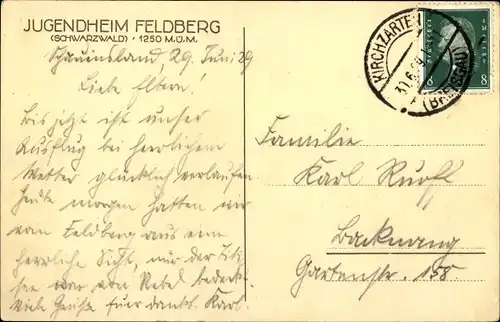 JUGENDHEIM FELDBERG
(SCHWARZWALD) · 1250 M.Ü.M.
Schauinsland, 29. Juni 29
Liebe Eltern!
Bis jetzt ist unser
Ausflug bei herrlichem
Wetter glücklich verlaufen.
Heute morgen hatten wir
vom Feldberg aus eine
herrliche Sicht, nur der Titi-
see war von Nebel bedeckt.
Viele Grüße Euer dankb. Karl.
KIRCHZARTEN
(BREISGAU)
8 8
Familie
Karl Ruoff
Backnang
Gartenstr. 158